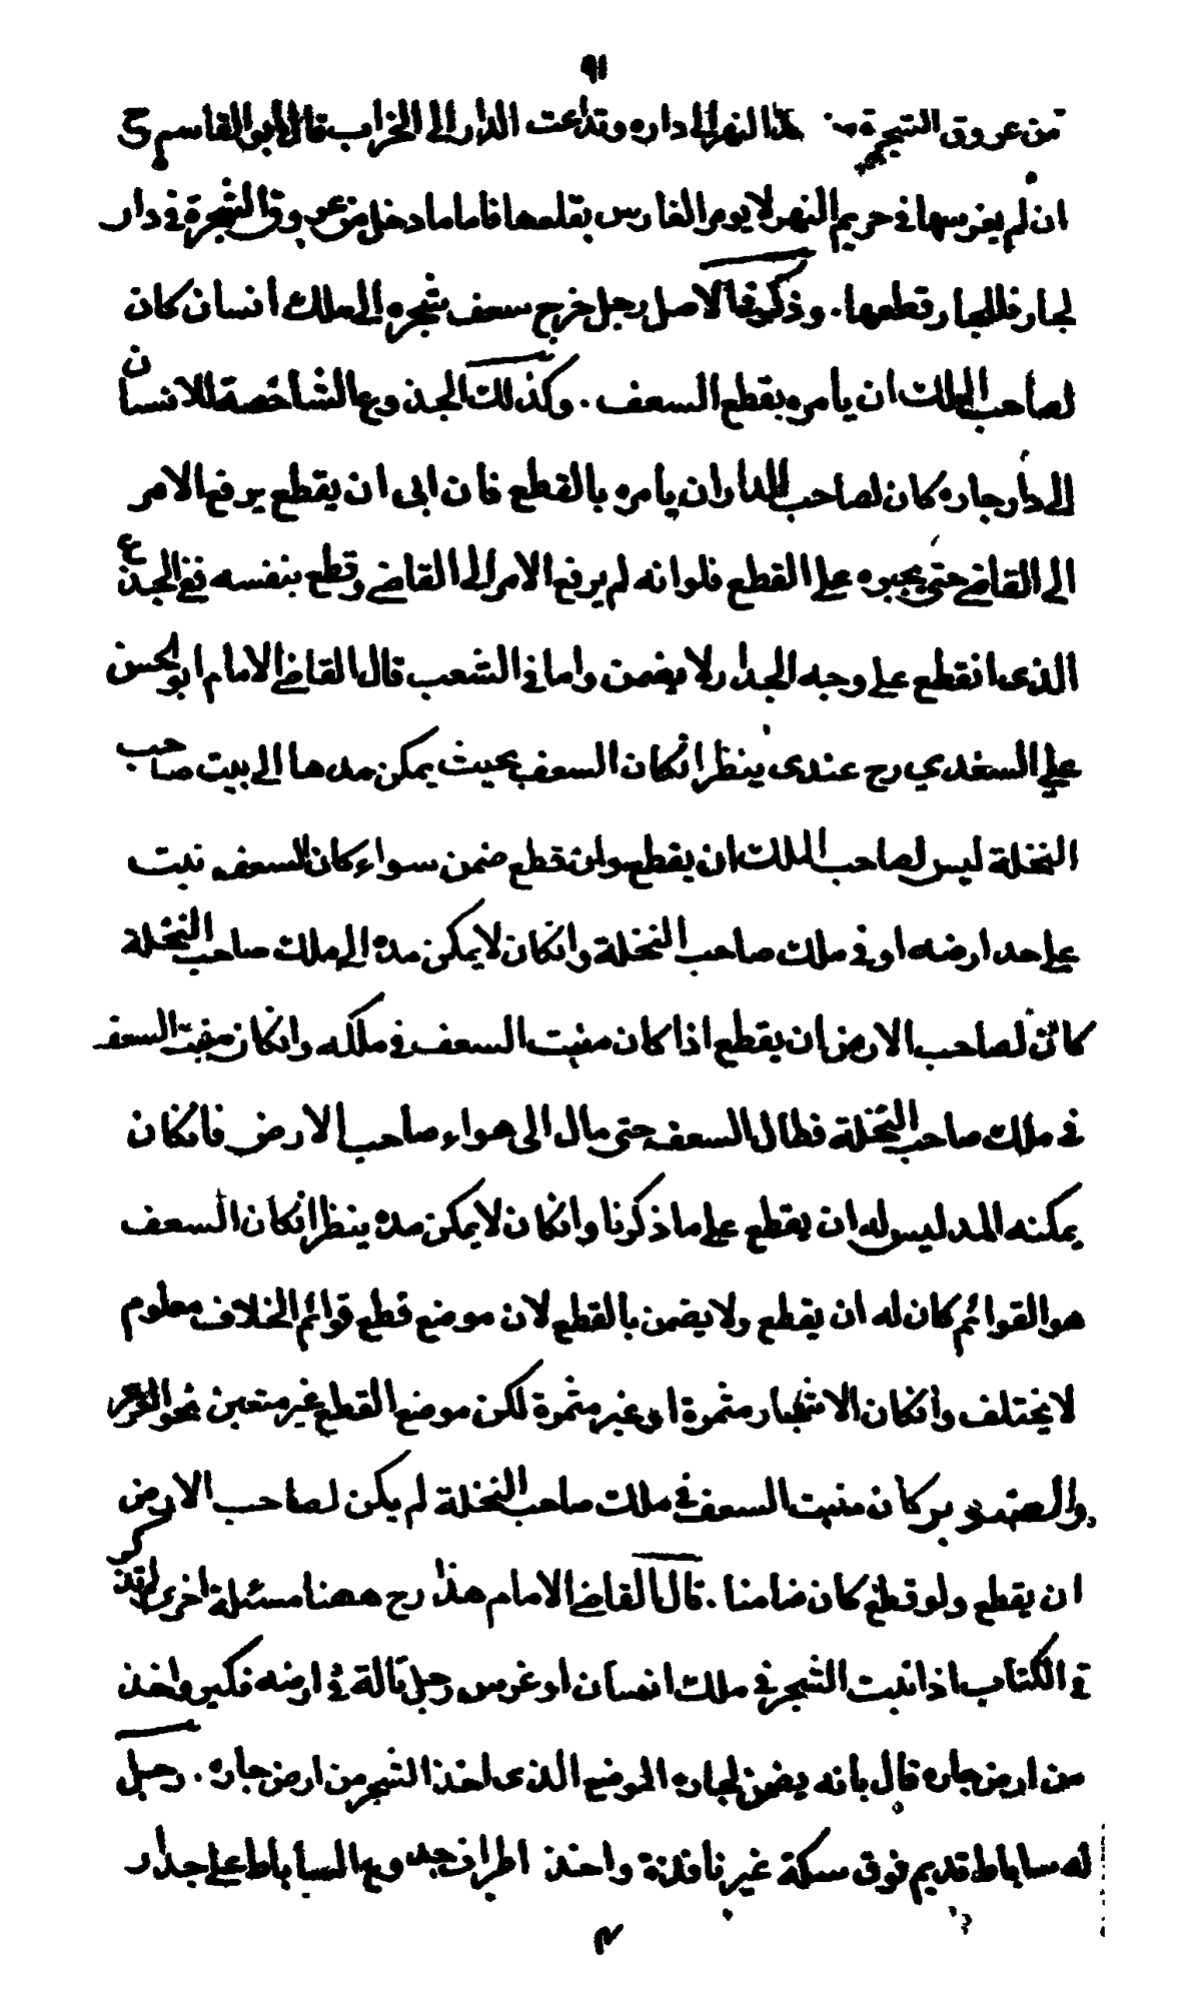 ٩١
من عروق الشجرة من هذا النهر الى داره وتداعت الدار الى الخراب قال ابو القاسم رح
ان لم يغرسها في حريم النهر لا يومر الغارس بقلعها فاما ما دخل من عروق الشجرة في دار
لجار فللجار قطعها . وذكر في الاصل رجل خرج سعف شجره الى ملك انسان كان
لصاحب الملك ان يأمره بقطع السعف . وكذلك الجذوع الشاخصة للانسان
الى دار جاره كان لصاحب الدار ان يامره بالقطع فان ابى ان يقطع يرفع الامر
الى القاضي حتى يجبره على القطع فلو انه لم يرفع الامر الى القاضي وقطع بنفسه ففي الجذع
الذى انقطع على وجه الجدار لا يضمن واما في الشعب قال القاضي الامام ابو الحسن
علي السغدي رح عندى ينظر انكان السعف بحيث يمكن مدها الى بيت صاحب
النخلة ليس لصاحب الملك ان يقطع وان قطع ضمن سواء كان السعف نبت
على حد ارضه او في ملك صاحب النخلة وانكان لا يمكن مده الى ملك صاحب النخلة
كان لصاحب الارض ان يقطع اذا كان منبت السعف في ملكه وانكان منبت السعف
في ملك صاحب النخلة فطال السعف حتى مال الى هواء صاحب الارض فانكان
يمكنه المد ليس له ان يقطع على ما ذكرنا وانكان لا يمكن مده ينظر انكان السعف
هو القوائم كان له ان يقطع ولا يضمن بالقطع لان موضع قطع قوائم الخلاف معلوم
لا يختلف وانكان الاشجار مثمرة او غير مثمرة لكن موضع القطع غير متعين نحو العرعر
والصنوبر كان منبت السعف في ملك صاحب النخلة لم يكن لصاحب الارض
ان يقطع ولو قطع كان ضامنا . قال القاضي الامام هذا رح ههنا مسئلة اخرى لم تذكر
في الكتاب اذا نبت الشجر في ملك انسان او غرس رجل تالة في ارضه فكبر واخذ
من ارض جاره قال بانه يضمن لجاره الموضع الذى اخذ الشجر من ارض جاره . رجل
له ساباط قديم فوق سكة غير نافذة واحد اطراف جذوع الساباط على جدار